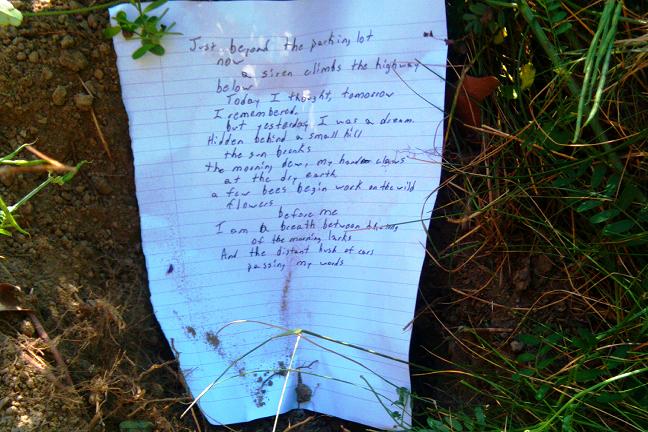 Just beyond the parking lot
now
a siren climbs the highway
below
Today I thought, tomorrow
I remembered,
but yesterday I was a dream.
Hidden behind a small hill
the sun breaks
the morning dew, my hand claws
at the dry earth
a few bees begin work on the wild
flowers
before me
I am a breath between
of the morning larks
And the distant hush of cars
passing my words